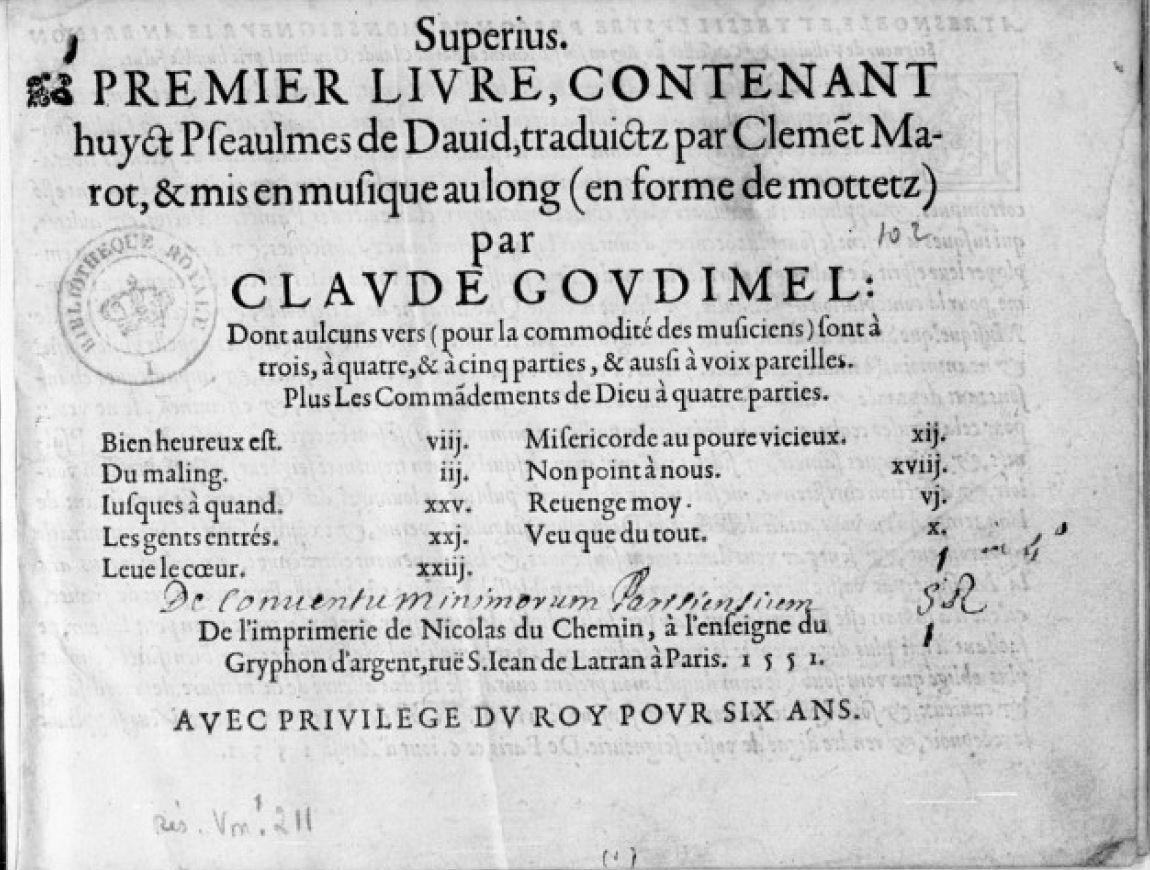 Superius.
PREMIER LIVRE, CONTENANT
huyct Pſeaulmes de Dauid, traduictz par Clemēt Ma-
rot, & mis en muſique au long (en forme de mottetz)
par
102
CLAVDE GOVDIMEL:
BIBLIOTHEQUE ROYALE
Dont aulcuns vers (pour la commodité des muſiciens) ſont à
trois, à quatre, & à cinq parties, & auſſi à voix pareilles.
Plus Les Commādements de Dieu à quatre parties.
Bien heureux eſt. viij. Miſericorde au poure vicieux. xij.
Du maling. iij. Non point à nous. xviij.
Iuſques à quand. xxv. Reuenge moy. vj.
Les gents entrés. xxj. Veu que du tout. x.
Leue le cœur. xxiij.
De Conuentu Minimorum Parisiensium
SR
De l'imprimerie de Nicolas du Chemin, à l'enſeigne du
Gryphon d'argent, ruë S. Iean de Latran à Paris. 1551.
AVEC PRIVILEGE DV ROY POVR SIX ANS.
Rés. Vm¹. 211